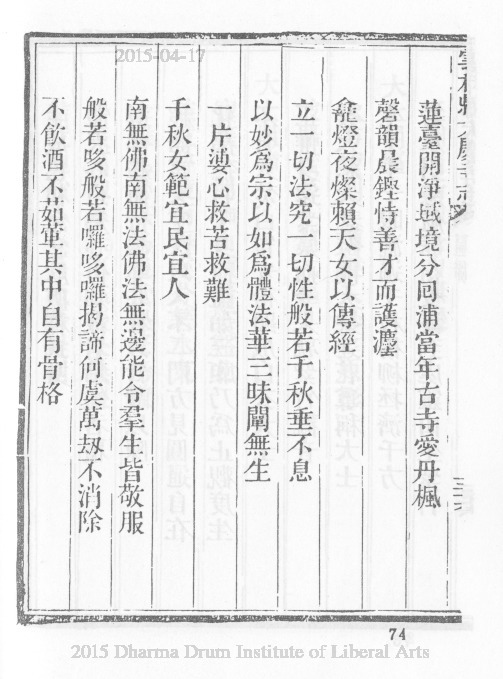 2015-04-17
蓮臺開淨域境分囘浦當年古寺愛丹楓
磬韻晨鏗恃善才而護灋
龕燈夜燦賴天女以傳經
立一切法究一切性般若千秋垂不息
以妙爲宗以如爲體法華三昧闡無生
一片婆心救苦救難
千秋女範宜民宜人
南無佛南無法佛法無邊能令羣生皆敬服
般若哆般若囉哆囉揭諦何虞萬刼不消除
不飲酒不茹葷其中自有骨格
74
2015 Dharma Drum Institute of Liberal Arts